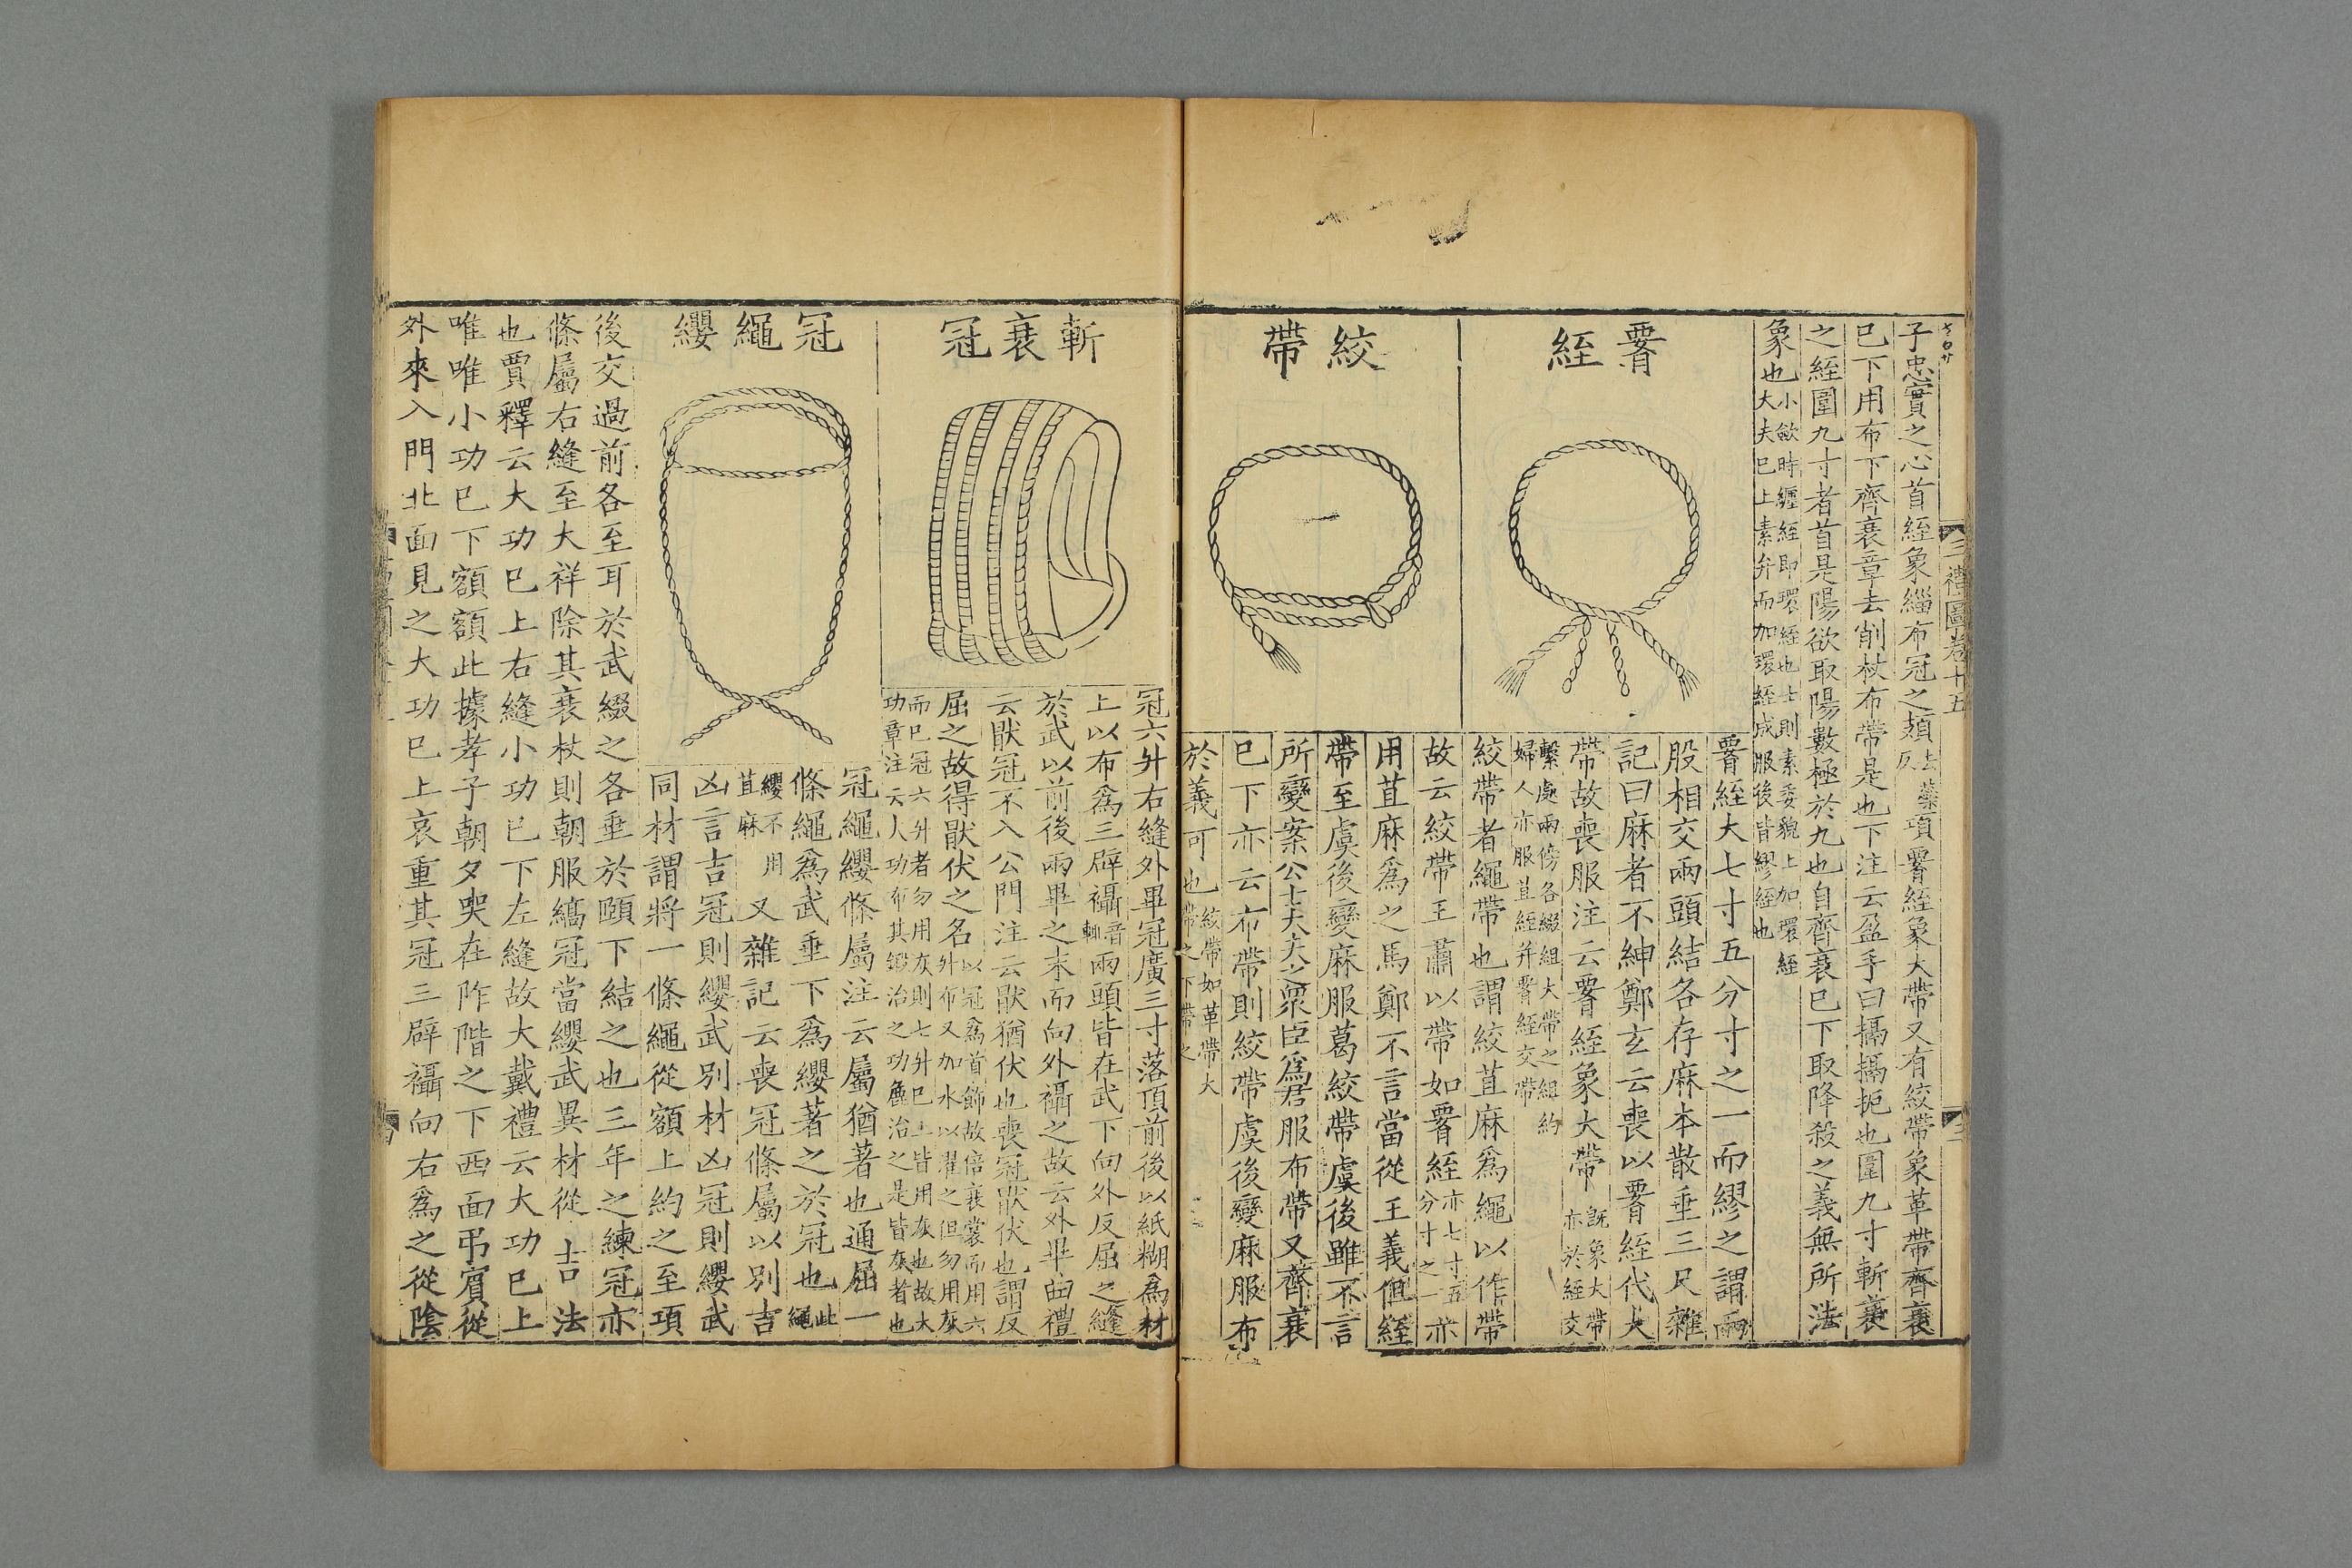 三禮圖卷十五
子忠實之心首絰象緇布冠之頍項䝨絰象大帶又有絞帶象革帶齊衰
已下用布下齊衰章去削杖布帶是也下注云盈手曰搹搹扼也圍九寸斬衰
之絰圍九寸者首是陽欲取陽數極於九也自齊衰已下取降殺之義無所法
象也
小斂時纏絰即環絰也士則素委貌上加環絰
大夫已上素弁而加環絰成服後皆繆絰也
䝨絰
䝨絰大七寸五分寸之一而繆之謂兩
股相交兩頭結各存麻本散垂三尺雜
記曰麻者不紳鄭玄云喪以䝨絰代大
帶故喪服注云䝨絰象大帶
既象大帶
亦於絰交
繫處兩傍各綴組大帶之組約
婦人亦服苴絰并䝨絰交帶
絞帶
絞帶者繩帶也謂絞苴麻爲繩以作帶
故云絞帶王肅以帶如䝨絰
亦七寸五
分寸之一亦
用苴麻爲之馬鄭不言當從王義但絰
帶至虞後變麻服葛絞帶虞後雖不言
所變案公士大夫之衆臣爲君服布帶又齊衰
已下亦云布帶則絞帶虞後變麻服布
於義可也
絞帶如革帶大
帶之下帶之
斬衰冠
冠六升右縫外畢冠廣三寸落頂前後以紙糊爲材
上以布爲三辟襵
音
輒
兩頭皆在武下向外反屈之縫
於武以前後兩畢之末而向外襵之故云外畢曲禮
云猒冠不入公門注云猒猶伏也喪冠猒伏也謂反
屈之故得猒伏之名
以冠爲首飾故倍衰裳而用六
升布又加水以濯之但勿用灰
而已冠六升者勿用灰則七升已上皆用灰也故大
功章注云大功布其鍛治之功麤治之是皆灰者也
冠繩纓
冠繩纓條屬注云屬猶著也通屈一
條繩爲武垂下爲纓著之於冠也
此
繩
纓不用
苴麻
又雜記云喪冠條屬以別吉
凶言吉冠則纓武別材凶冠則纓武
同材謂將一條繩從額上約之至項
後交過前各至耳於武綴之各垂於頤下結之也三年之練冠亦
條屬右縫至大祥除其衰杖則朝服縞冠當纓武異材從吉法
也賈釋云大功已上右縫小功已下左縫故大戴禮云大功已上
唯唯小功已下額額此據孝子朝夕哭在阼階之下西面弔賓從
外來入門北面見之大功已上哀重其冠三辟襵向右爲之從陰